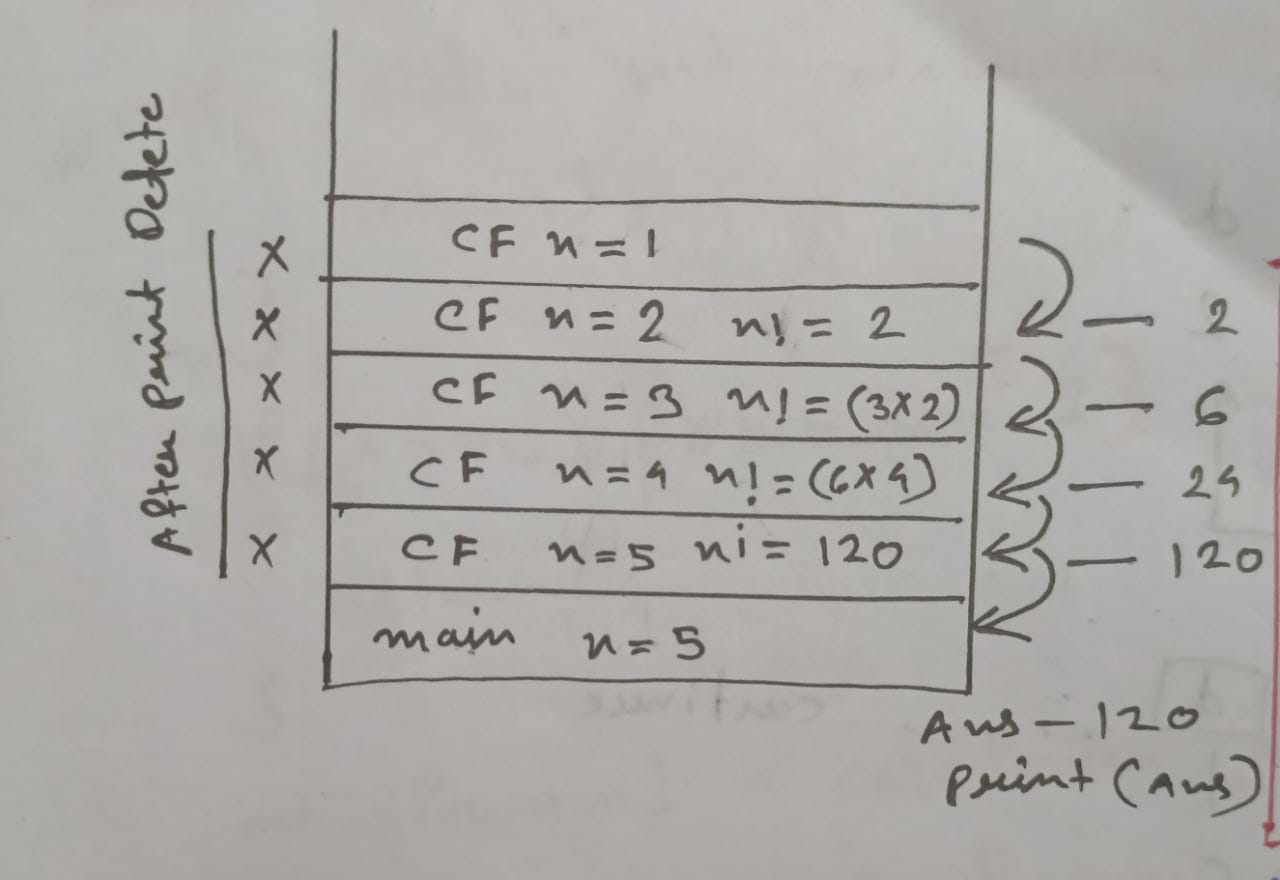 After Print Delete
X CF n = 1
X CF n = 2 n! = 2 — 2
X CF n = 3 n! = (3X2) — 6
X CF n = 4 n! = (6X4) — 24
X CF n = 5 ni = 120 — 120
main n = 5
Ans — 120
Print (Ans)